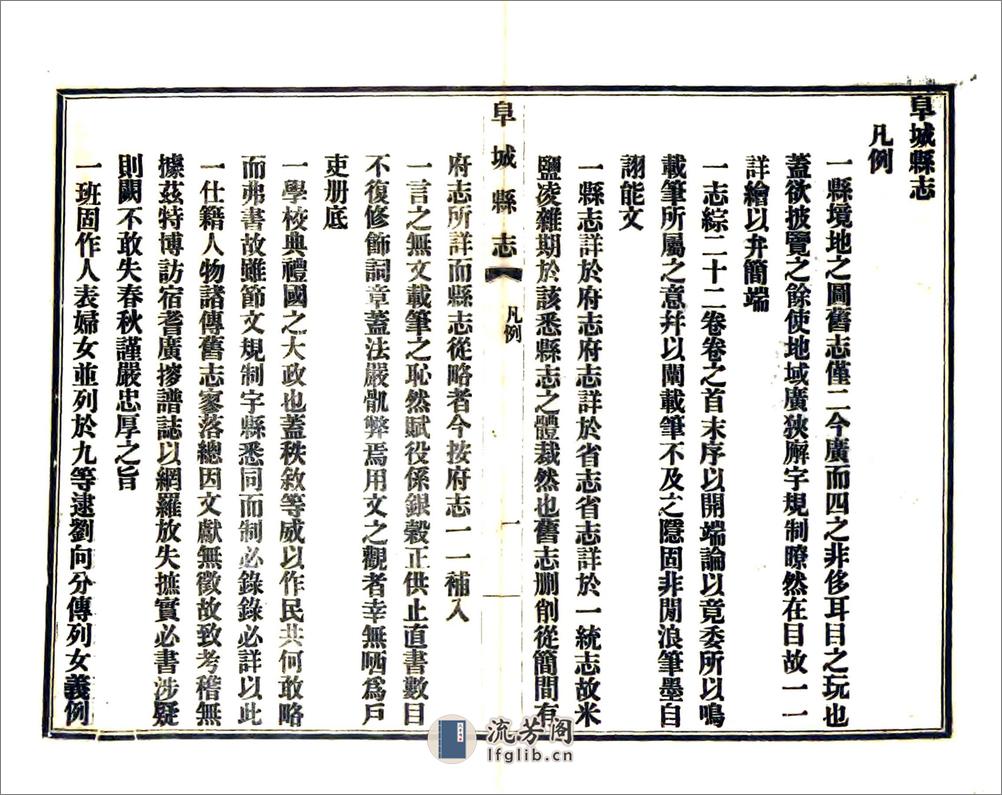 阜城縣志
凡例
一縣境地之圖舊志僅二今廣而四之非侈耳目之玩也
蓋欲披覽之餘使地域廣狹廨宇規制瞭然在目故一一
詳繪以弁簡端
一志綜二十二卷卷之首末序以開端論以竟委所以鳴
載筆所屬之意幷以闡載筆不及之隱固非閒浪筆墨自
詡能文
一縣志詳於府志府志詳於省志省志詳於一統志故米
鹽凌雜期於該悉縣志之體裁然也舊志删削從簡間有
阜城縣志
凡例
一
府志所詳而縣志從略者今按府志一一補入
一言之無文載筆之恥然賦役係銀穀正供止直書數目
不復修飾詞章蓋法嚴骩弊焉用文之觀者幸無哂爲戶
吏册底
一學校典禮國之大政也蓋秩敘等威以作民共何敢略
而弗書故雖節文規制宇縣悉同而制必錄錄必詳以此
一仕籍人物諸傳舊志寥落總因文獻無徵故致考稽無
據茲特博訪宿耆廣搜譜誌以網羅放失摭實必書涉疑
則闕不敢失春秋謹嚴忠厚之旨
一班固作人表婦女並列於九等逮劉向分傳列女義例
流芳阁
lfglib.cn